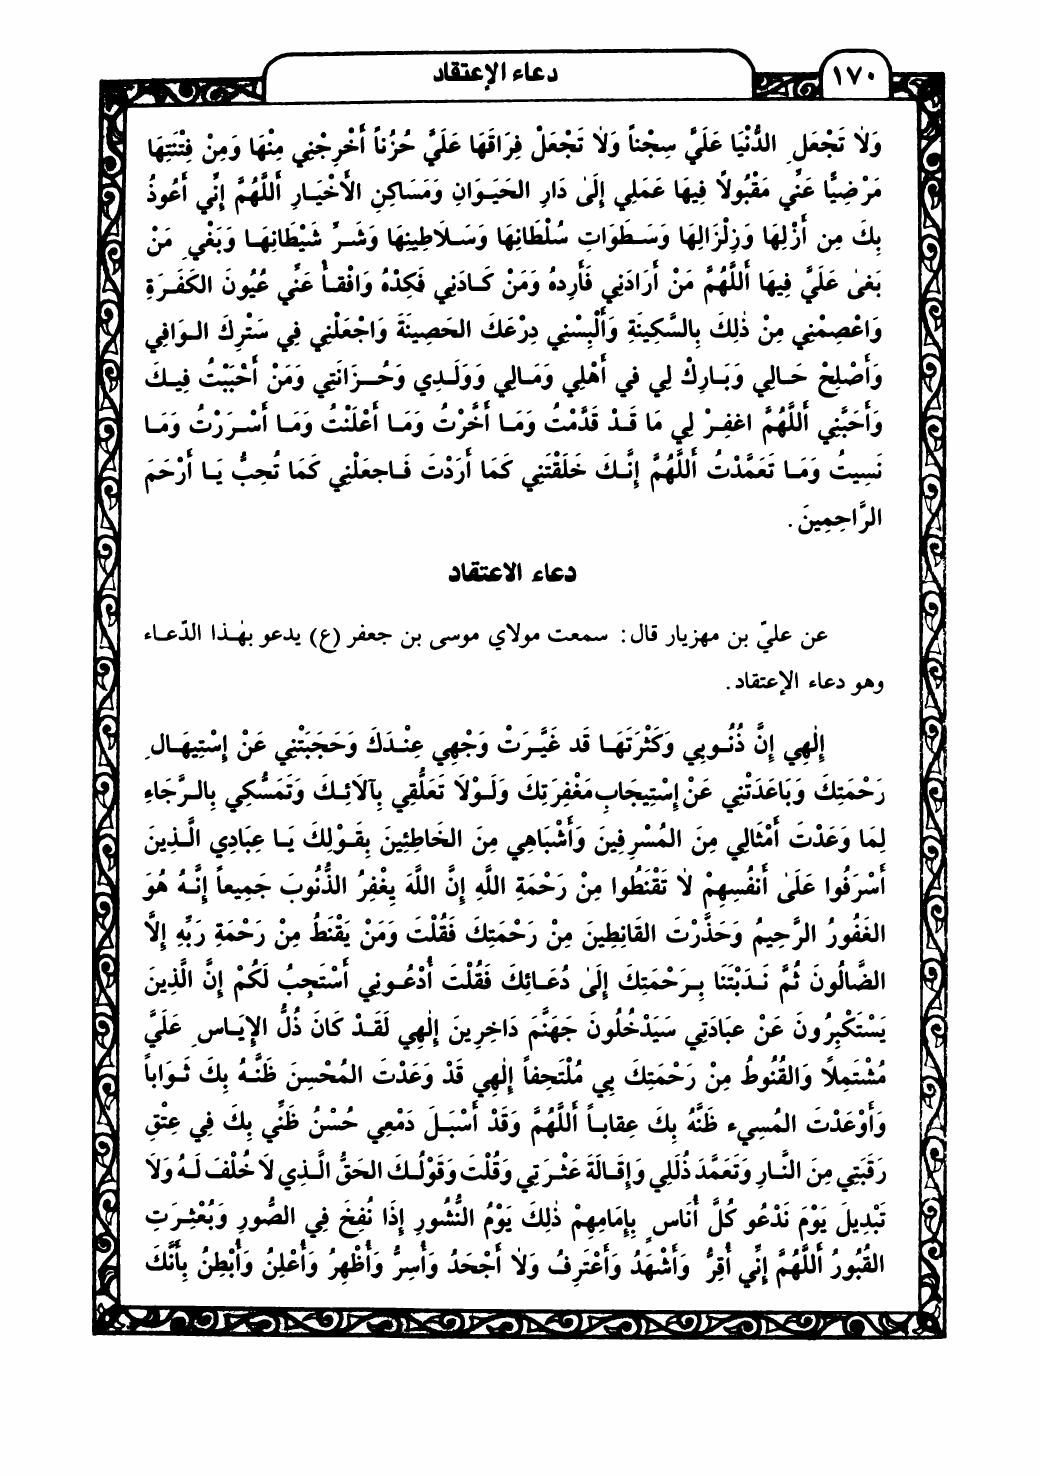 ١٧٠
دعاء الإعتقاد
وَلاَ تَجْعَلِ الدُّنْيَا عَلَيَّ سِجْناً وَلاَ تَجْعَلْ فِرَاقَهَا عَلَيَّ حُزْناً أَخْرِجْنِي مِنْهَا وَمِنْ فِتْنَتِهَا
مَرْضِيًّا عَنِّي مَقْبُولاً فِيهَا عَمَلِي إِلَىٰ دَارِ الحَيَوَانِ وَمَسَاكِنِ الأَخْيَارِ أَللَّهُمَّ إِنِّي أَعُوذُ
بِكَ مِن أَزْلِهَا وَزِلْزَالِهَا وَسَطَوَاتِ سُلْطَانِهَا وَسَلاطِينِهَا وَشَرِّ شَيْطَانِهَا وَبَغْيِ مَنْ
بَغَىٰ عَلَيَّ فِيهَا أَللَّهُمَّ مَنْ أَرَادَنِي فَأَرِدهُ وَمَنْ كَادَنِي فَكِدْهُ وَافْقَأْ عَنِّي عُيُونَ الكَفَرَةِ
وَاعْصِمْنِي مِنْ ذٰلِكَ بِالسَّكِينَةِ وَأَلْبِسْنِي دِرْعَكَ الحَصِينَةَ وَاجْعَلْنِي فِي سَتْرِكَ الوَافِي
وَأَصْلِحْ حَالِي وَبَارِكْ لِي في أَهْلِي وَمَالِي وَوَلَدِي وَحُزَانَتِي وَمَنْ أَحْبَبْتُ فِيكَ
وَأَحَبَّنِي أَللَّهُمَّ اغفِرْ لِي مَا قَدْ قَدَّمْتُ وَمَا أَخَّرْتُ وَمَا أَعْلَنْتُ وَمَا أَسْرَرْتُ وَمَا
نَسِيتُ وَمَا تَعَمَّدْتُ أَللَّهُمَّ إِنَّكَ خَلَقْتَنِي كَمَا أَرَدْتَ فَاجعَلْنِي كَمَا تُحِبُّ يَا أَرْحَمَ
الرَّاحِمِينَ.
دعاء الاعتقاد
عن عليّ بن مهزيار قال: سمعت مولاي موسى بن جعفر (ع) يدعو بهٰذا الدّعاء
وهو دعاء الإعتقاد.
إِلٰهِي إِنَّ ذُنُوبِي وَكَثْرَتَهَا قَد غَيَّرَتْ وَجْهِي عِنْدَكَ وَحَجَبَتْنِي عَنْ إِسْتِيهَالِ
رَحْمَتِكَ وَبَاعَدَتْنِي عَنْ إِسْتِيجَابِ مَغْفِرَتِكَ وَلَوْلاَ تَعَلُّقِي بِآلاَئِكَ وَتَمَسُّكِي بِالرَّجَاءِ
لِمَا وَعَدْتَ أَمْثَالِي مِنَ المُسْرِفِينَ وَأَشْبَاهِي مِنَ الخَاطِئِينَ بِقَوْلِكَ يَا عِبَادِي الَّذِينَ
أَسْرَفُوا عَلَىٰ أَنفُسِهِمْ لاَ تَقْنَطُوا مِنْ رَحْمَةِ اللَّهِ إِنَّ اللَّهَ يِغْفِرُ الذُّنُوبَ جَمِيعاً إِنَّهُ هُوَ
الغَفُورُ الرَّحِيمُ وَحَذَّرْتَ القَانِطِينَ مِنْ رَحْمَتِكَ فَقُلْتَ وَمَنْ يَقْنَطُ مِنْ رَحْمَةِ رَبِّهِ إِلاَّ
الضَّالُونَ ثُمَّ نَدَبْتَنَا بِرَحْمَتِكَ إِلَىٰ دُعَائِكَ فَقُلْتَ أُدْعُونِي أَسْتَجِبُ لَكُمْ إِنَّ الَّذِينَ
يَسْتَكْبِرُونَ عَنْ عبَادَتِي سَيَدْخُلُونَ جَهَنَّمَ دَاخِرِينَ إِلٰهِي لَقَدْ كَانَ ذُلُّ الإِيَاسِ عَلَيَّ
مُشْتَمِلاً وَالقُنُوطُ مِنْ رَحْمَتِكَ بِي مُلْتَحِفاً إِلٰهِي قَدْ وَعَدْتَ المُحْسِنَ ظَنَّهُ بِكَ ثَوَاباً
وَأَوْعَدْتَ المُسِيء ظَنَّهُ بِكَ عِقاباً أَللَّهُمَّ وَقَدْ أَسْبَلَ دَمْعِي حُسْنُ ظَنِّي بِكَ فِي عِتْقِ
رَقَبَتِي مِنَ النَّارِ وَتَعَمَّدَ ذُلَلِي وَإِقَالَةَ عَثْرَتِي وَقُلْتَ وَقَوْلُكَ الحَقُّ الَّذِي لاَ خُلْفَ لَهُ وَلاَ
تَبْدِيلَ يَوْمَ نَدْعُو كُلَّ أُنَاسٍ بِإِمَامِهِمْ ذٰلِكَ يَوْمُ النُّشُورِ إِذَا نُفِخَ فِي الصُّورِ وَبُعْثِرَتِ
القُبُورُ أَللَّهُمَّ إِنِّي أُقِرُّ وَأَشْهَدُ وَأَعْتَرِفُ وَلاَ أَجْحَدُ وَأُسِرُّ وَأُظْهِرُ وَأُعْلِنُ وَأُبْطِنُ بِأَنَّكَ